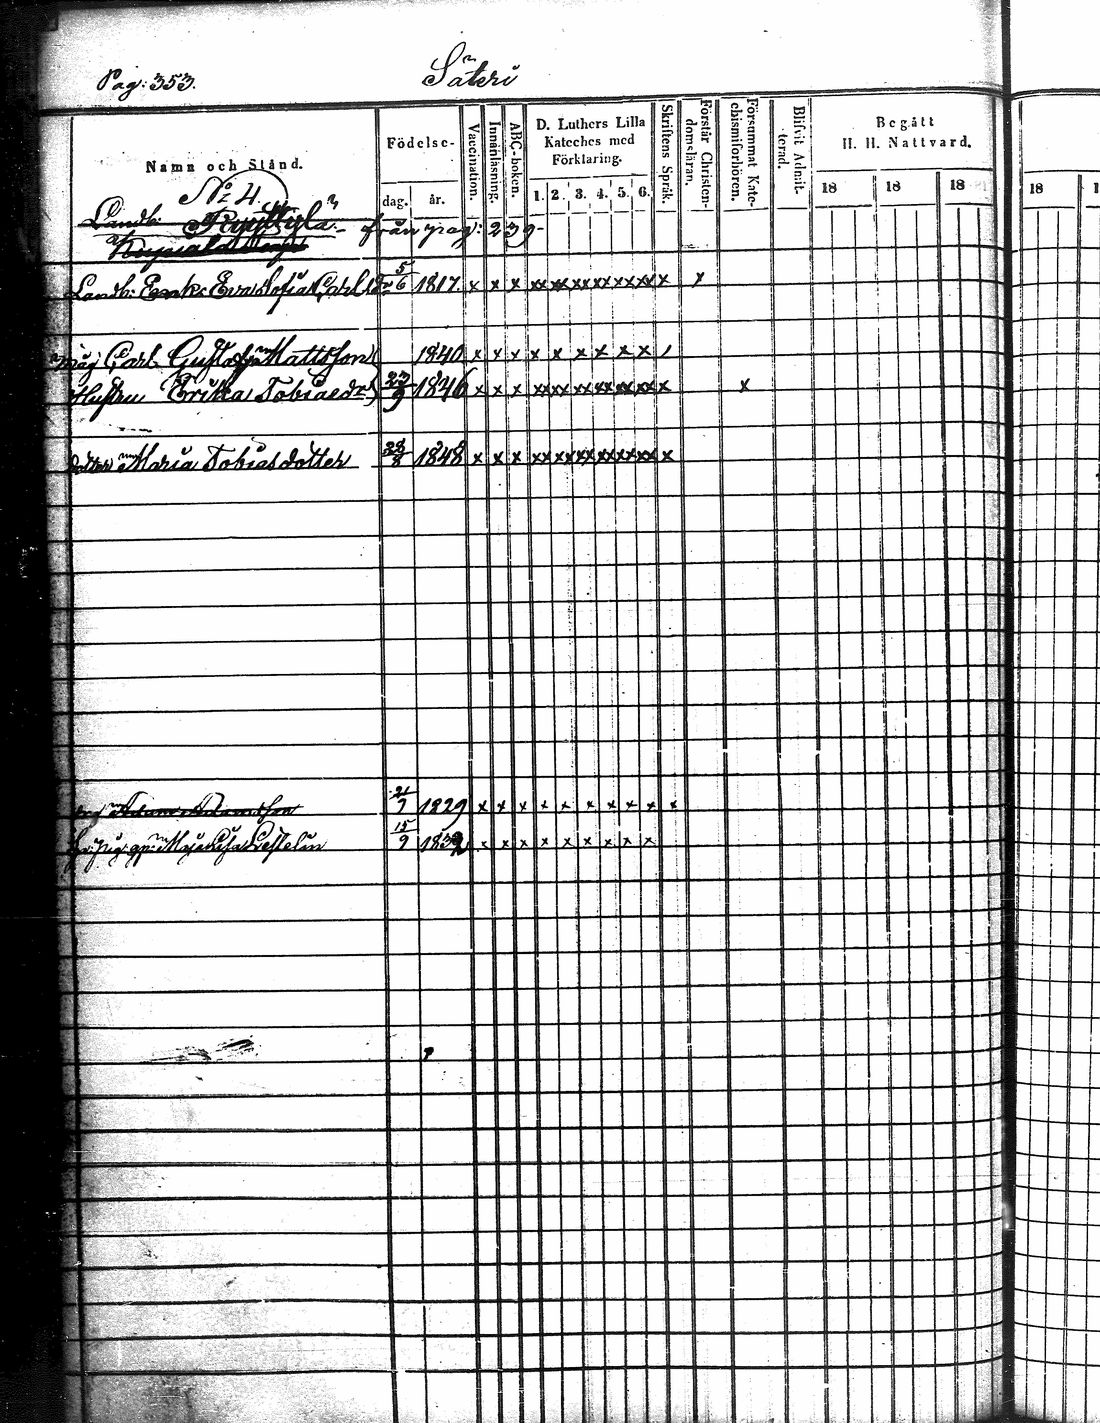 Pag: 353.
Säteri
Namn och Stånd.
Födelse-
dag.
år.
Vaccination.
Innanläsning.
ABC-boken.
D. Luthers Lilla
Kateches med
Förklaring.
1. 2. 3. 4. 5. 6.
Skriftens Språk.
Förstår Christen-
domsläran.
Försummat Kate-
chismiförhören.
Blifvit Admit-
terad.
Begått
H. H. Nattvard.
18 18 18 18
No 4.
Landb: från pag: 239-
Landb: Enka Eva Sofia Carlsdr 5/6 1817 x x x xx xx xx xx xx xx x x
måg Carl Gustaf Mattsson 1840 x x x x x x x x x /
Hustru Erika Tobiasdr 23/9 1846 x x x xx xx xx xx xx xx x x
dotter Maria Tobiasdotter 28/8 1848 x x x xx xx xx xx xx xx x
Adam Adamsson 21/7 1829 x x x x x x x x x x
15/9 1832 x x x x x x x x x